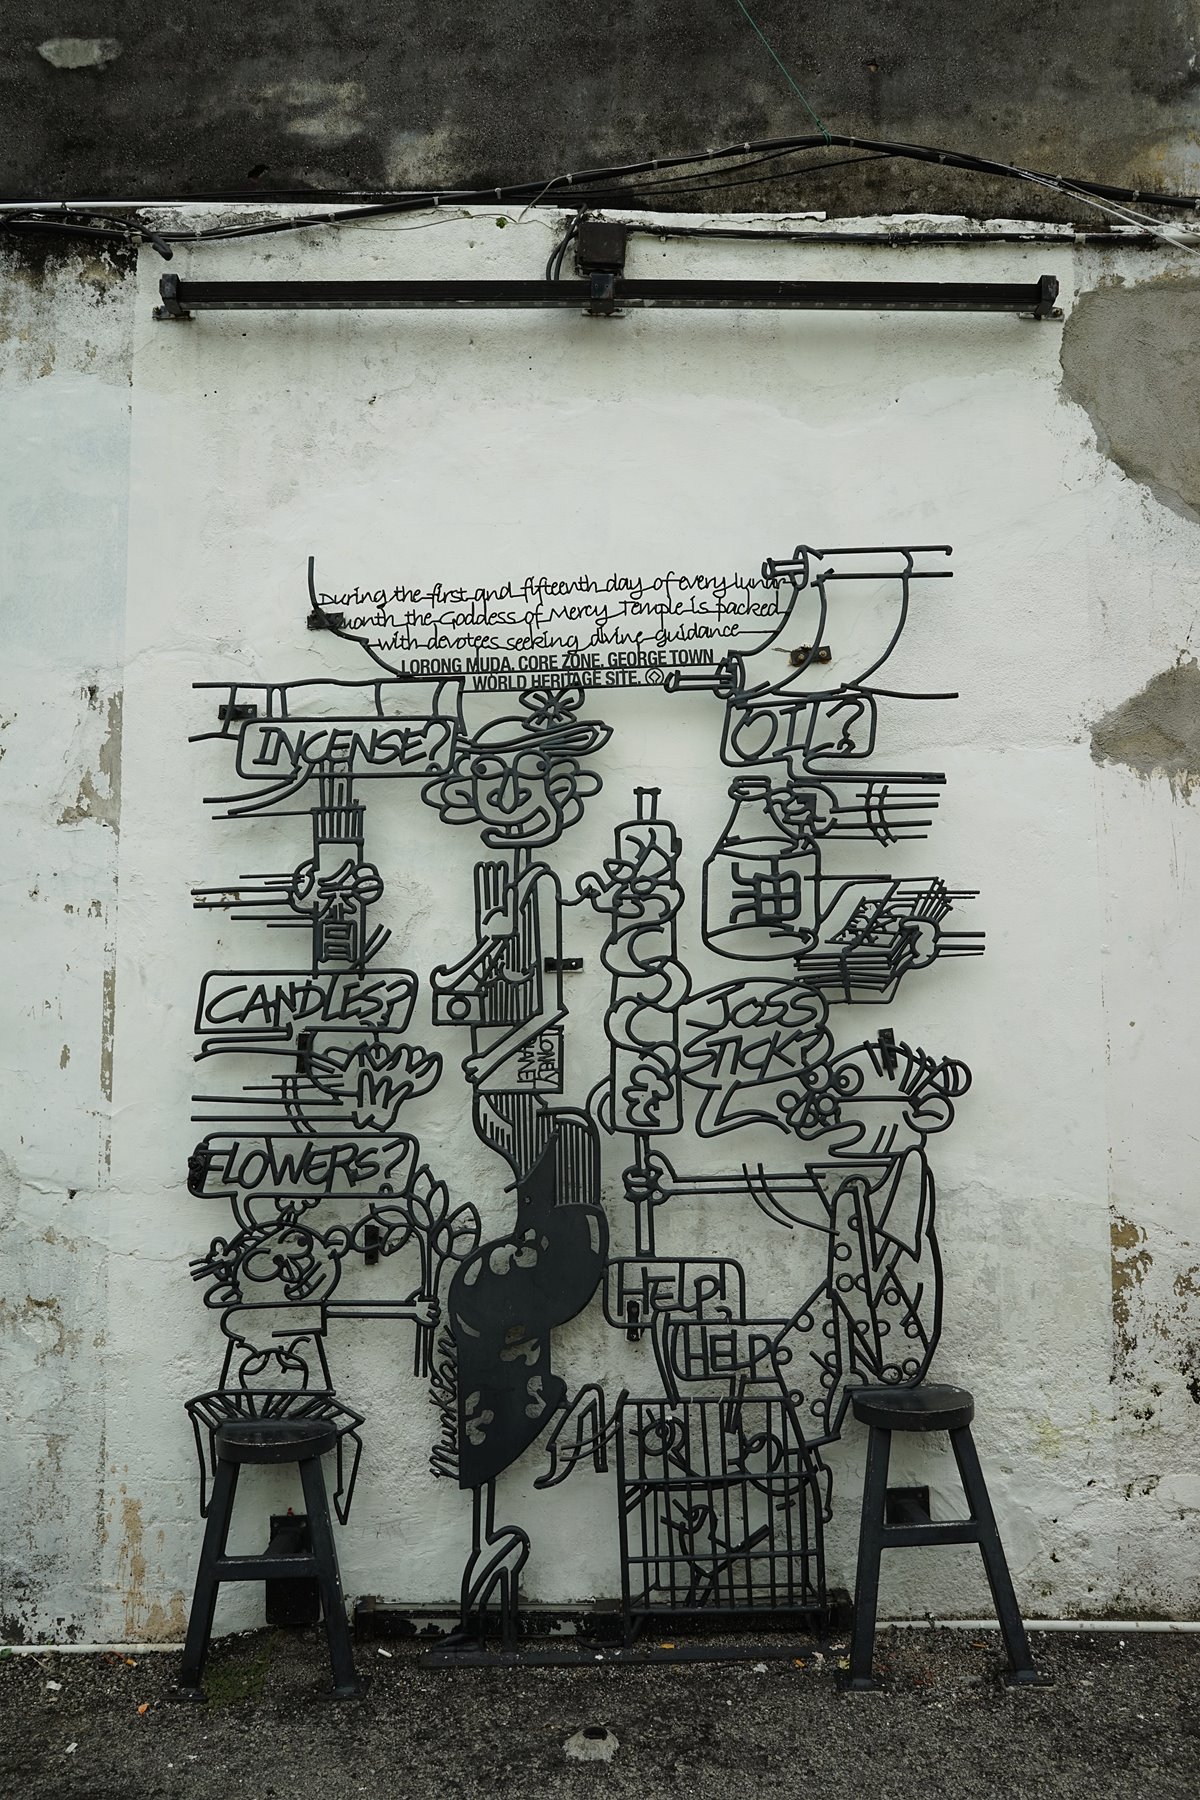 During the first and fifteenth day of every lunar
month the Goddess of Mercy Temple is packed
with devotees seeking divine guidance
LORONG MUDA, CORE ZONE, GEORGE TOWN
WORLD HERITAGE SITE.
INCENSE?
OIL?
油
CANDLES?
JOSS
STICK?
LONELY
PLANET
FLOWERS?
HELP!
HELP